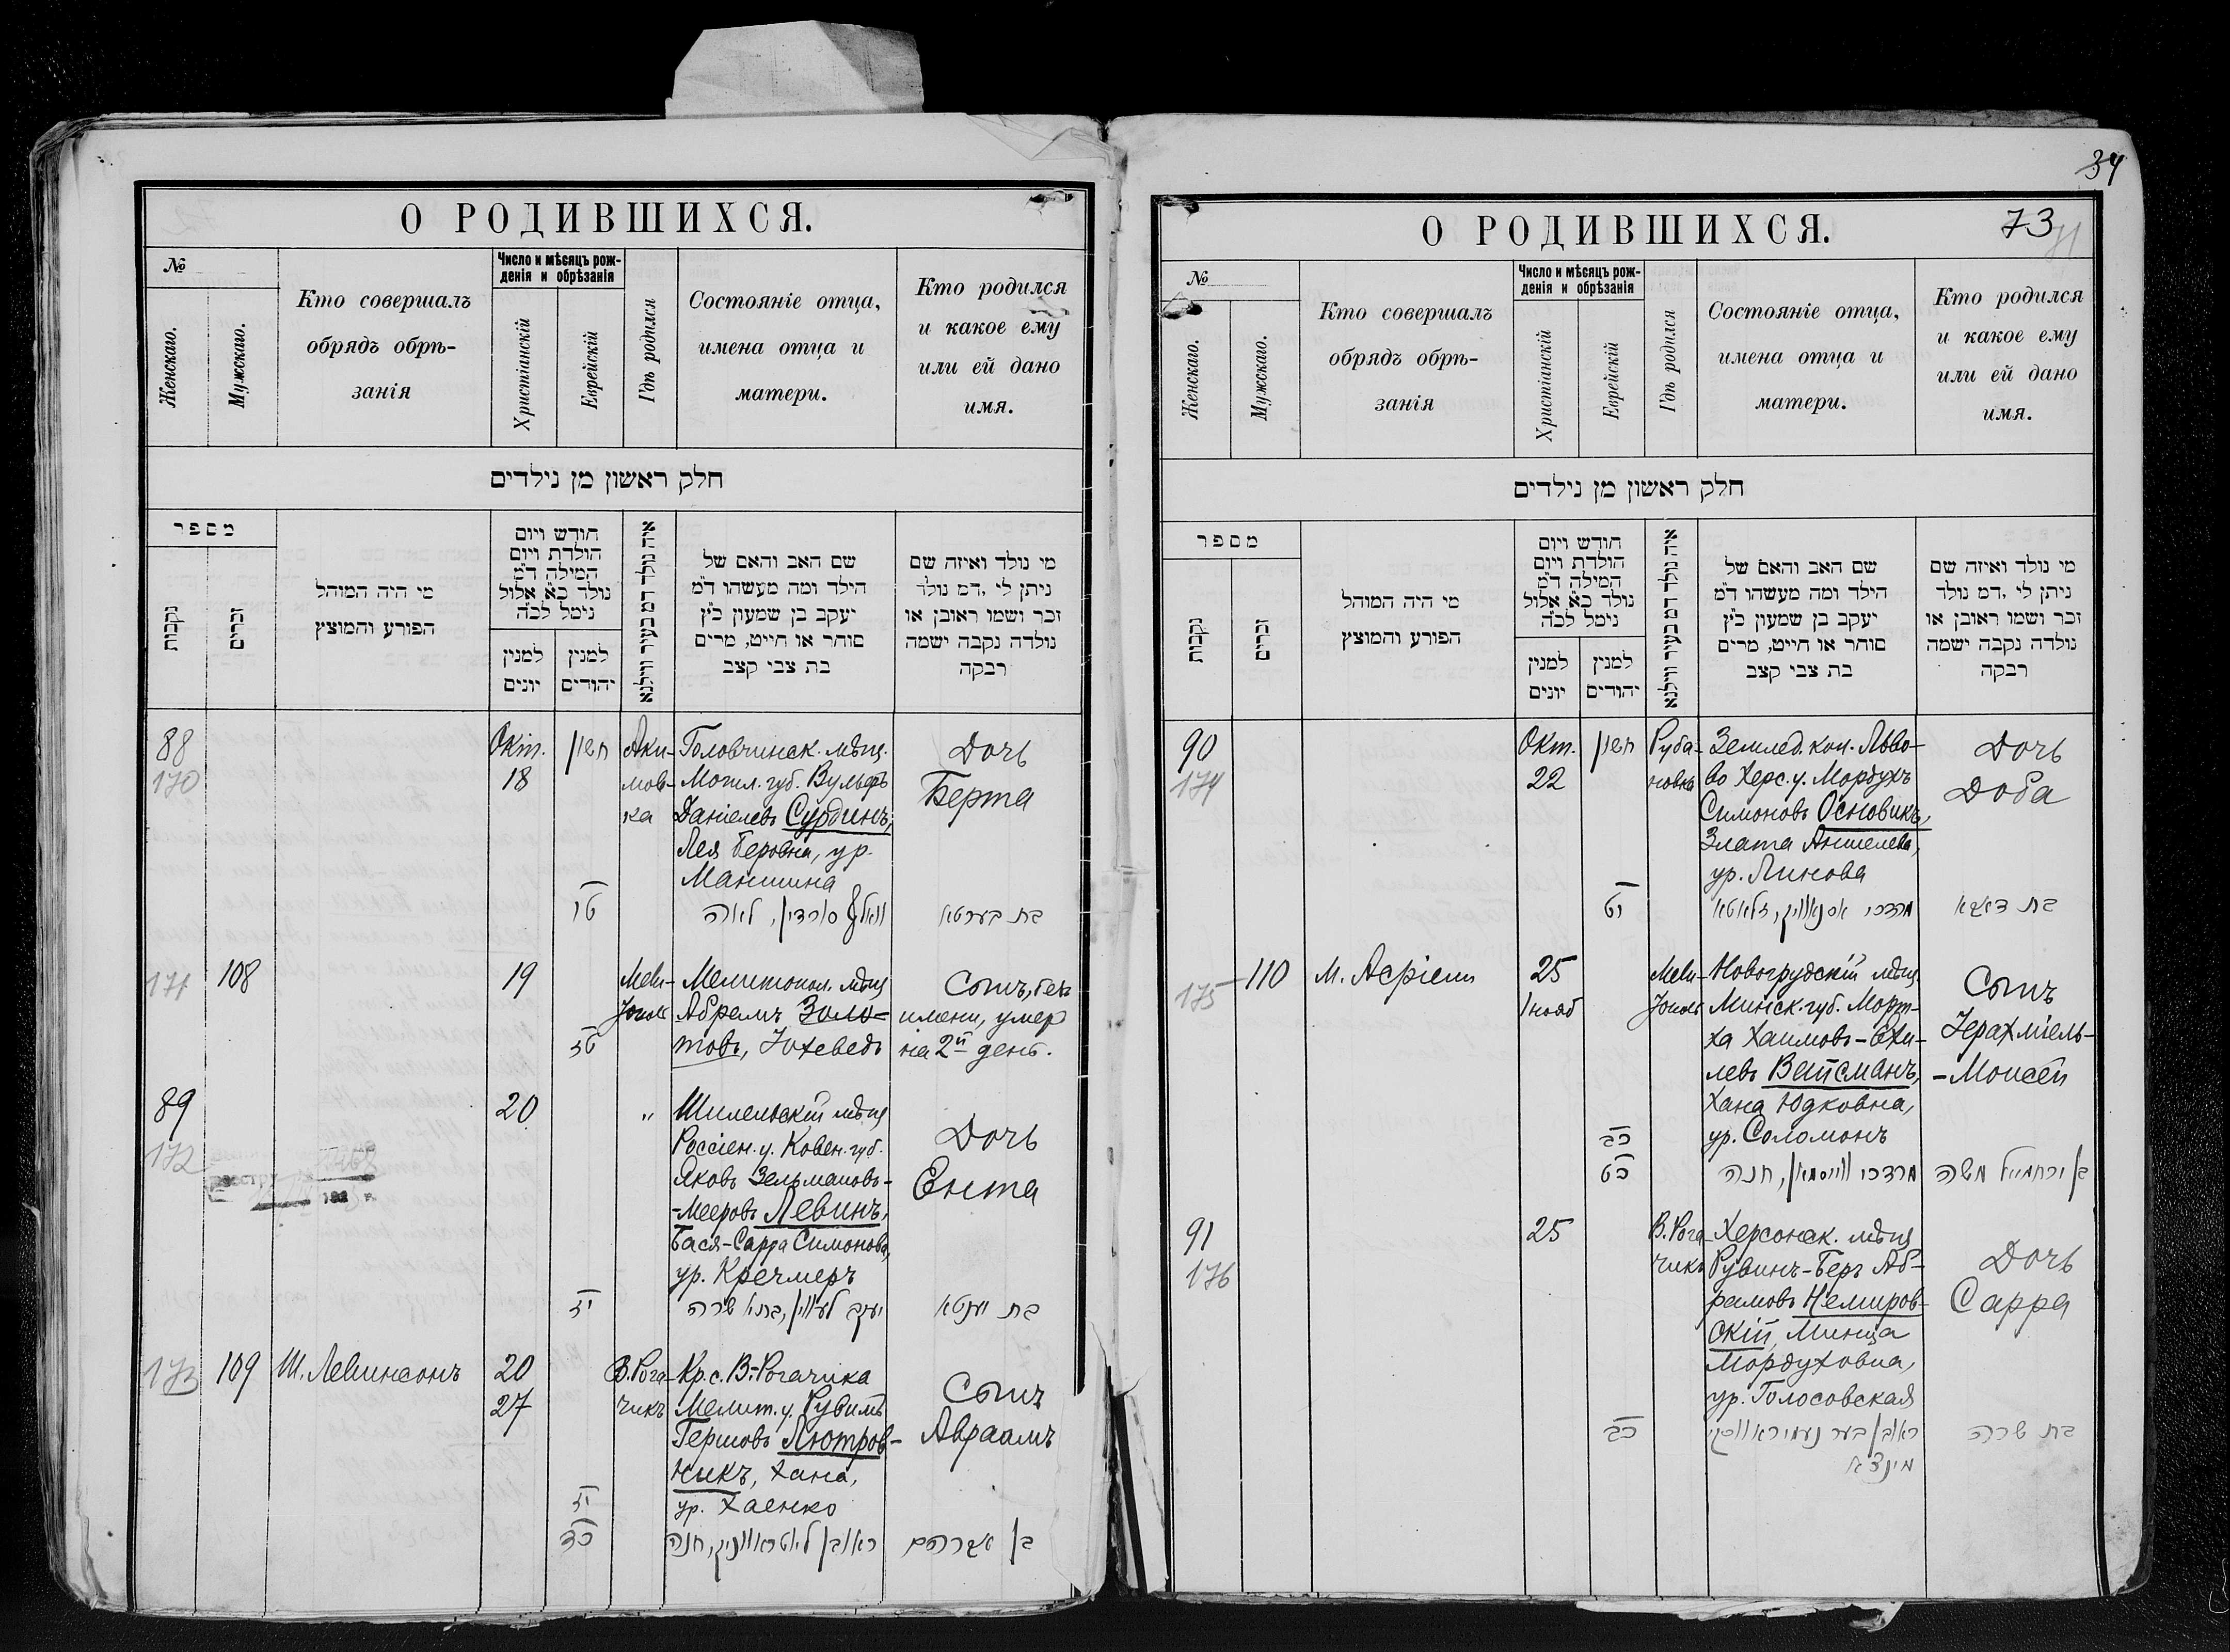 О РОДИВШИХСЯ.
№
Женскаго.
Мужскаго.
Кто совершалъ
обрядъ обрѣ-
занія
Число и мѣсяцъ рож-
денія и обрѣзанія
Христіанскій
Еврейскій
Гдѣ родился
Состояніе отца,
имена отца и
матери.
Кто родился
и какое ему
или ей дано
имя.
חלק ראשון מן נילדים
מספר
נקבות
זכרים
מי היה המוהל
הפורע והמוצץ
חודש ויום
הולדת ויום
המילה ד״מ
נולד כ״א אלול
נימל לכ״ה
למנין
יונים
למנין
יהודים
איה נולד דמ בעיר ווילנא
שם האב והאם של
הילד ומה מעשהו ד״מ
יעקב בן שמעון כ״ץ
סוחר או חייט, מרים
בת צבי קצב
מי נולד ואיזה שם
ניתן לי, דמ נולד
זכר ושמו ראובן או
נולדה נקבה ישמה
רבקה
88
170
Окт.
18
חשון
טו
Аки-
мов-
ка
Головчинск. мѣщ.
Могил. губ. Вульфъ
Даніелевъ Сурдинъ,
Лея Беровна, ур.
Маншина
וואלף סורדין, לאה
Дочь
Берта
בת בערטא
171
108
19
טז
Мели-
тополь
Мелитопол. мѣщ
Абрамъ Золо-
товъ, Іохеведъ
Сынъ, безъ
имени, умер
на 2й день.
89
172
20
יז
"
Шилельскій мѣщ
Россіен. у. Ковен. губ.
Яковъ Зельмановъ-
-Мееровъ Левинъ,
Бася-Сарра Симонова,
ур. Кречмеръ
יעקב לעווין, בתיא שרה
Дочь
Ента
בת יענטא
173
109
Ш. Левинсонъ
20
27
יז
כד
В.Рога-
чикъ
Кр. с. В.-Рогачика
Мелит. у. Рувимъ
Гершовъ Лютров-
никъ, Хана,
ур. Хаенко
ראובן ליוטראווניק, חנה
Сынъ
Авраамъ
בן אברהם
34
73
О РОДИВШИХСЯ.
№
Женскаго.
Мужскаго.
Кто совершалъ
обрядъ обрѣ-
занія
Число и мѣсяцъ рож-
денія и обрѣзанія
Христіанскій
Еврейскій
Гдѣ родился
Состояніе отца,
имена отца и
матери.
Кто родился
и какое ему
или ей дано
имя.
חלק ראשון מן נילדים
מספר
נקבות
זכרים
מי היה המוהל
הפורע והמוצץ
חודש ויום
הולדת ויום
המילה ד״מ
נולד כ״א אלול
נימל לכ״ה
למנין
יונים
למנין
יהודים
איה נולד דמ בעיר ווילנא
שם האב והאם של
הילד ומה מעשהו ד״מ
יעקב בן שמעון כ״ץ
סוחר או חייט, מרים
בת צבי קצב
מי נולד ואיזה שם
ניתן לי, דמ נולד
זכר ושמו ראובן או
נולדה נקבה ישמה
רבקה
90
174
Окт.
22
חשון
יט
Руба-
новка
Землед. кол. Льво-
во Херс. у. Мордухъ
Симоновъ Основикъ,
Злата Аншелева,
ур. Линова
מרדכי אסנאוויק, זלאטא
Дочь
Доба
בת דאבא
175
110
М. Асріелъ
25
1 нояб
כב
כט
Мели-
тополь
Новогрудскій мѣщ.
Минск. губ. Морт-
ха Хаимовъ-Ехи-
левъ Вайсманъ,
Хана Юдковна,
ур. Соломонъ
מרדכי ווייסמאן, חנה
Сынъ
Іерахміель-
-Моисей
בן ירחמיאל משה
91
176
25
כב
В.Рога-
чикъ
Херсонск. мѣщ
Рувинъ-Беръ Аб-
рамовъ Немиров-
скій, Минца
Мордуховна,
ур. Голосовская
ראובן בער נעמיראווסקי
מינצא
Дочь
Сарра
בת שרה